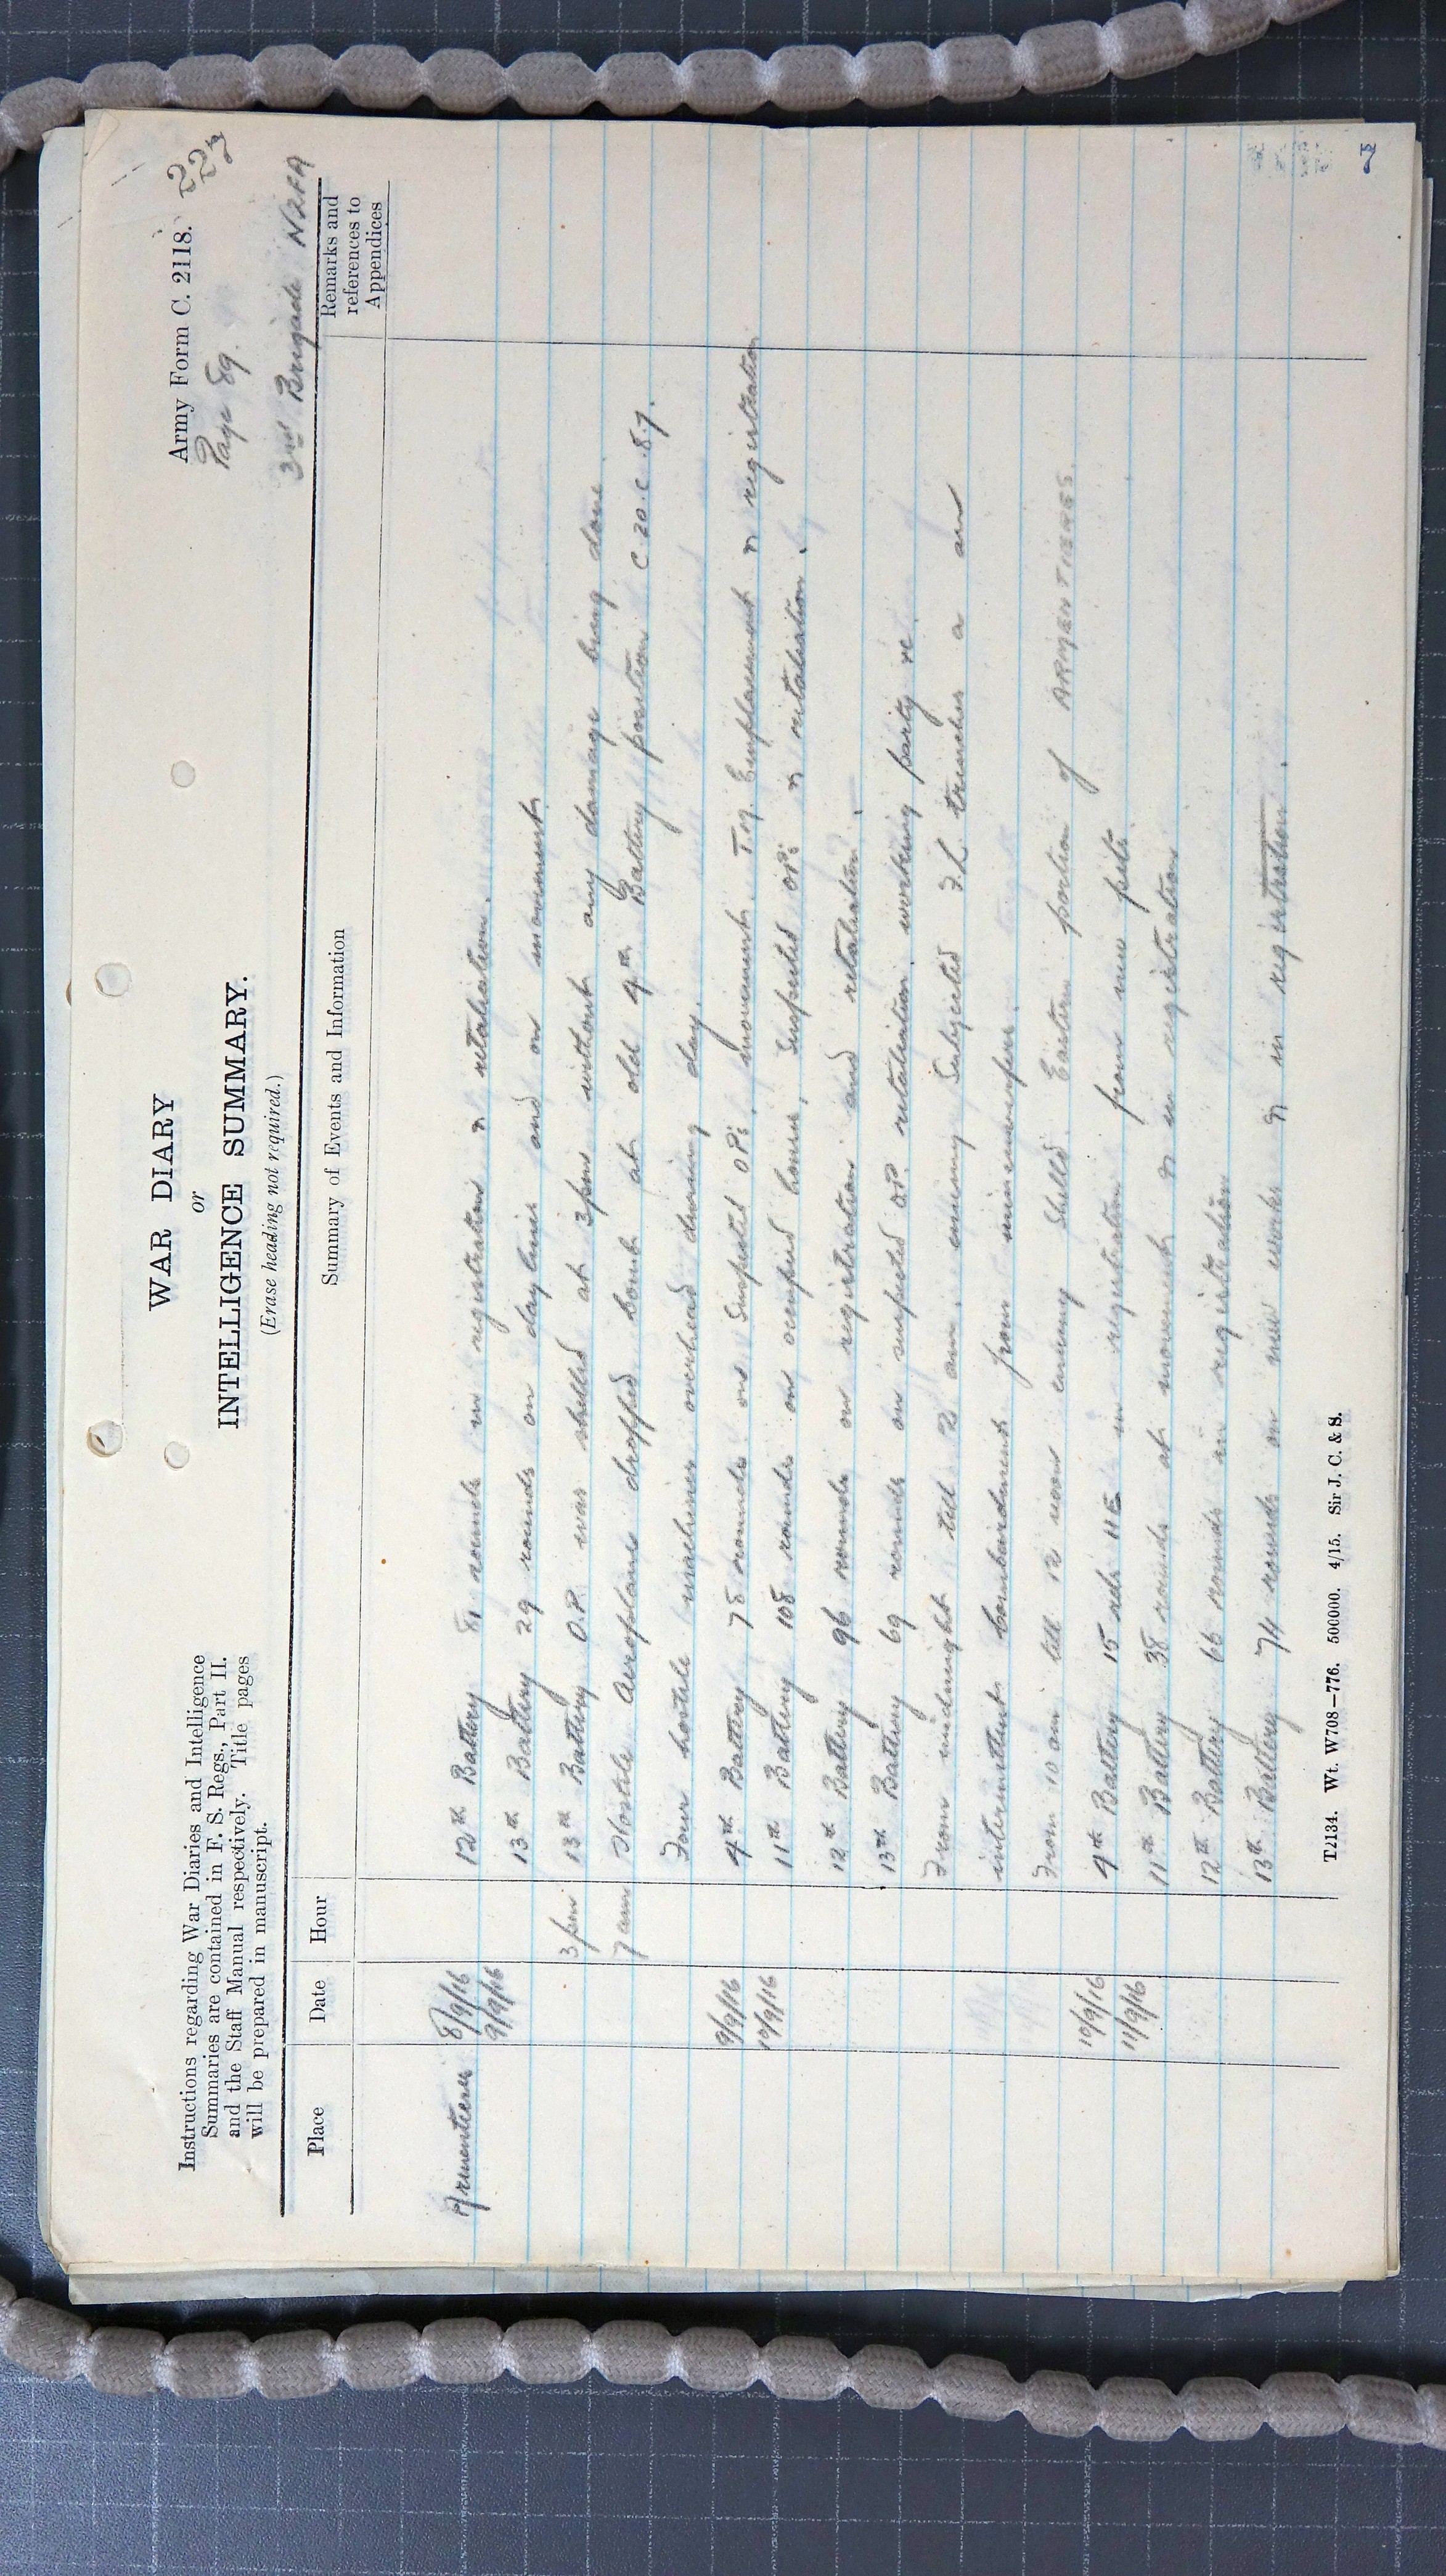 Army Form C. 2118.
227
Page 89.
3rd Brigade NZFA
WAR DIARY
or
INTELLIGENCE SUMMARY.
(Erase heading not required.)
Instructions regarding War Diaries and Intelligence
Summaries are contained in F. S. Regs., Part II.
and the Staff Manual respectively. Title pages
will be prepared in manuscript.
Place Date Hour Summary of Events and Information Remarks and references to Appendices
Armentieres 8/9/16 12th Battery 81 rounds in registration & retaliation.
9/9/16 13th Battery 29 rounds on day lines and on movement.
3 pm 13th Battery O.P. was shelled at 3 pm without any damage being done
7 am Hostile Aeroplane dropped bomb at old 4th Battery position C 20.c.8.7.
Four hostile machines overhead during day.
9/9/16 4th Battery 78 rounds on Suspected OPs, movement, T.M. Emplacement & registration
10/9/16 11th Battery 108 rounds on occupied house, Suspected OPs & retaliation.
12th Battery 96 rounds on registration and retaliation.
13th Battery 69 rounds on suspected OP. retaliation, working party
From midnight till 2 am. enemy Subjected F.L trenches a an
intermittent bombardment from minnenwerfer.
From 10 am till 12 noon enemy Shelled Eastern portion of ARMENTIERES.
10/9/16 4th Battery 15 rds HE in registration from new pits.
11/9/16 11th Battery 38 rounds at movement & in registration
12th Battery 66 rounds in registration
13th Battery 74 rounds on new works & in registration.
T2134. Wt. W708—776. 500000. 4/15. Sir J. C. & S.
7